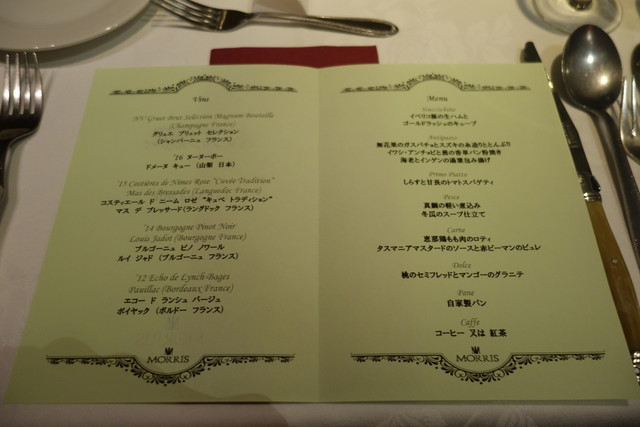 Vins
NV Gruet Brut Selection Magnum Bouteille
(Champagne France)
グリュエ ブリュット セレクション
(シャンパーニュ フランス)
'16 ヌーヌーボー
ドメーヌ キュー (山梨 日本)
'15 Costières de Nimes Rose "Cuvée Tradition"
Mas des Bressades (Languedoc France)
コスティエール ド ニーム ロゼ "キュベ トラディション"
マス デ ブレッサード(ラングドック フランス)
'14 Bourgogne Pinot Noir
Louis Jadot (Bourgogne France)
ブルゴーニュ ピノ ノワール
ルイ ジャド (ブルゴーニュ フランス)
'12 Echo de Lynch-Bages
Pauillac (Bordeaux France)
エコー ド ランシュ バージュ
ポイヤック (ボルドー フランス)
MORRIS
Menu
Stuzzichino
イベリコ豚の生ハムと
ゴールドラッシュのキューブ
Antipasto
無花果のガスパチョとスズキの糸造りととんぶり
イワシ・アンチョビと茄の香草パン粉焼き
海老とインゲンの湯葉包み揚げ
Primo Piatto
しらすと甘長のトマトスパゲティ
Pesce
真鯛の軽い煮込み
冬瓜のスープ仕立て
Carne
恵那鶏もも肉のロティ
タスマニアマスタードのソースと赤ピーマンのピュレ
Dolce
桃のセミフレッドとマンゴーのグラニテ
Pane
自家製パン
Caffe
コーヒー 又は 紅茶
MORRIS